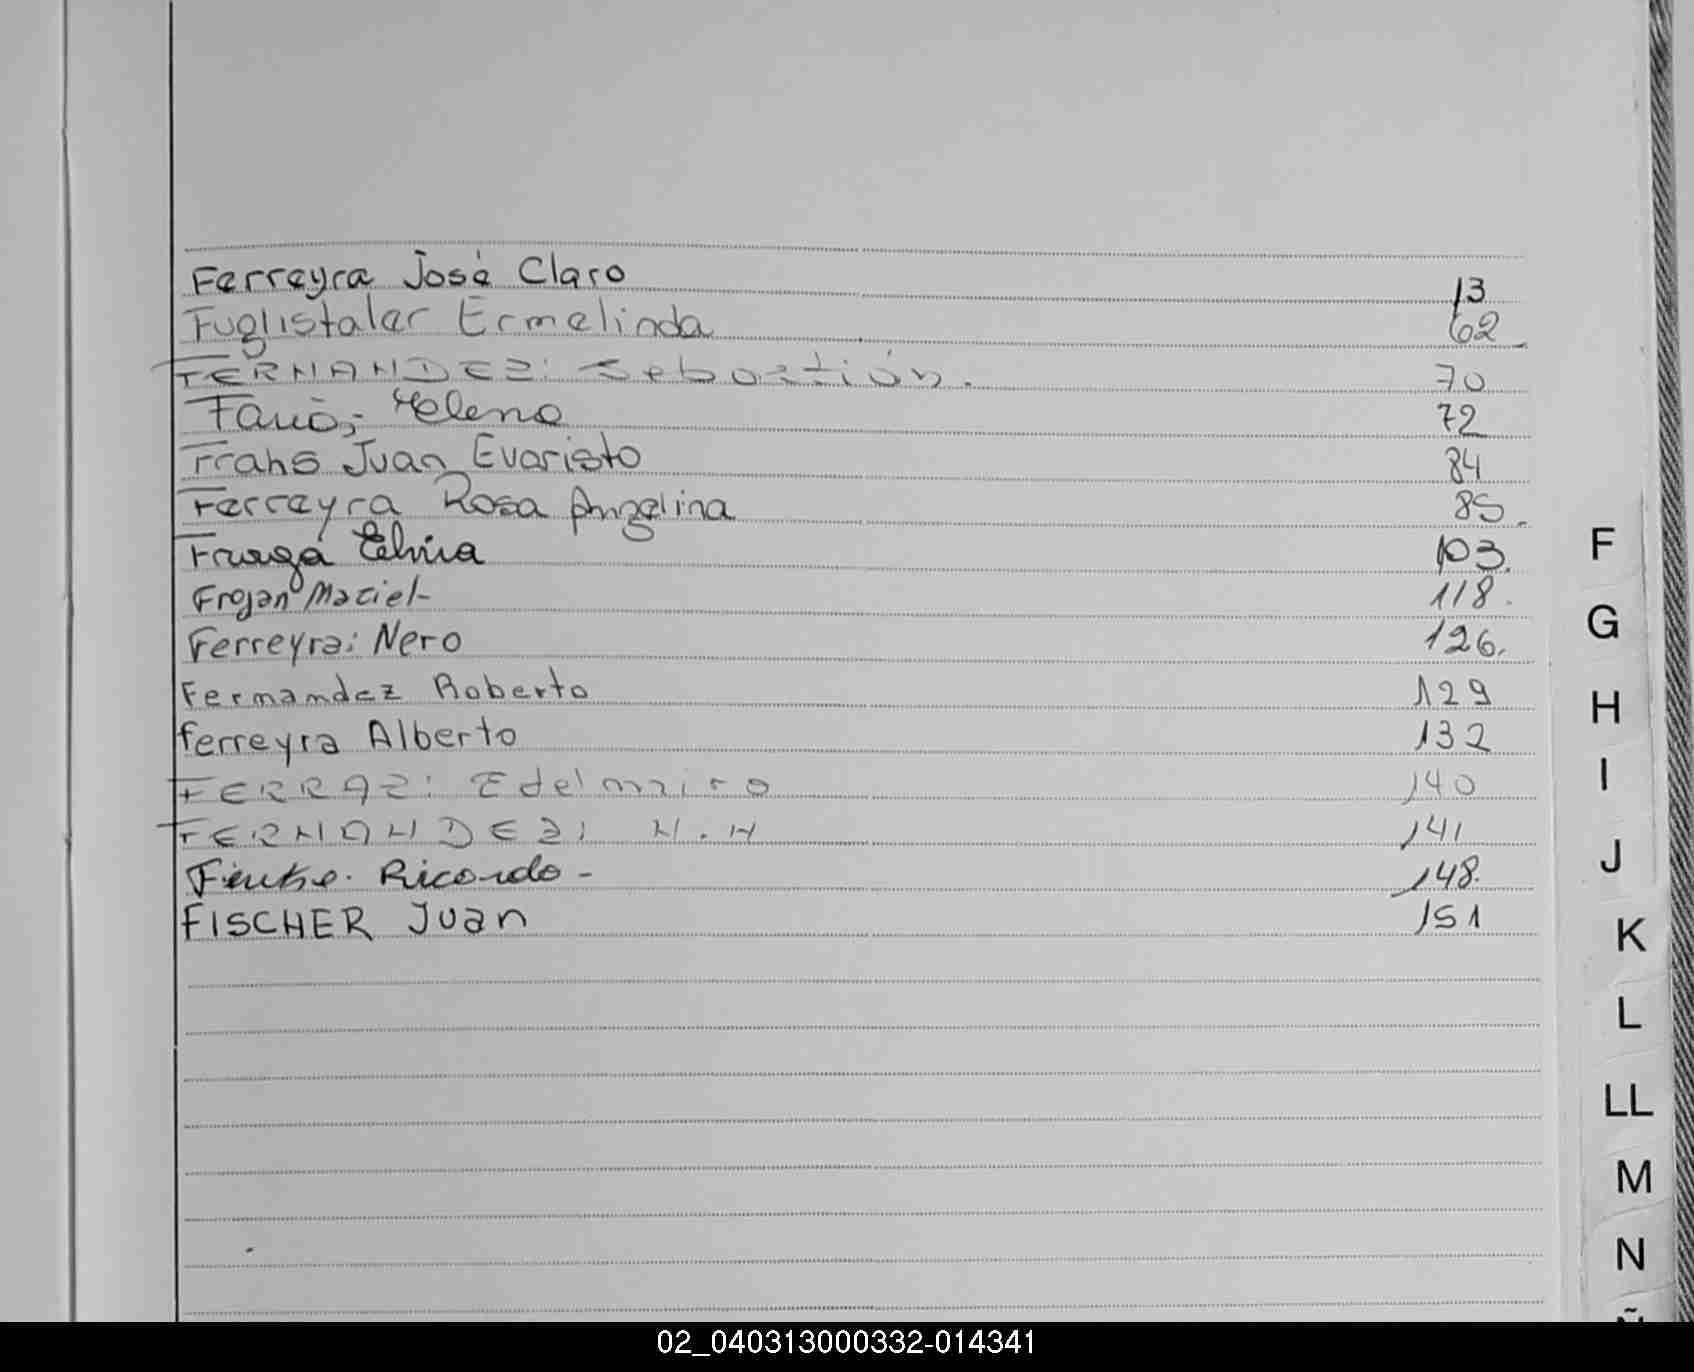 Ferreyra José Claro 13
Fuglistaler Ermelinda 62
FERNANDEZ: Sebastián. 70
Helena 72
Frahs Juan Evaristo 84
Ferreyra Rosa Angelina 85.
Fraga Elvira 103.
Frojan Maciel- 118.
Ferreyra: Nero 126.
Fernandez Roberto 129
ferreyra Alberto 132
FERRAZ: Edelmiro 140
FERNANDEZ: N.N 141
Ricardo - 148.
FISCHER Juan 151
F
G
H
I
J
K
L
LL
M
N
Ñ
02_040313000332-014341